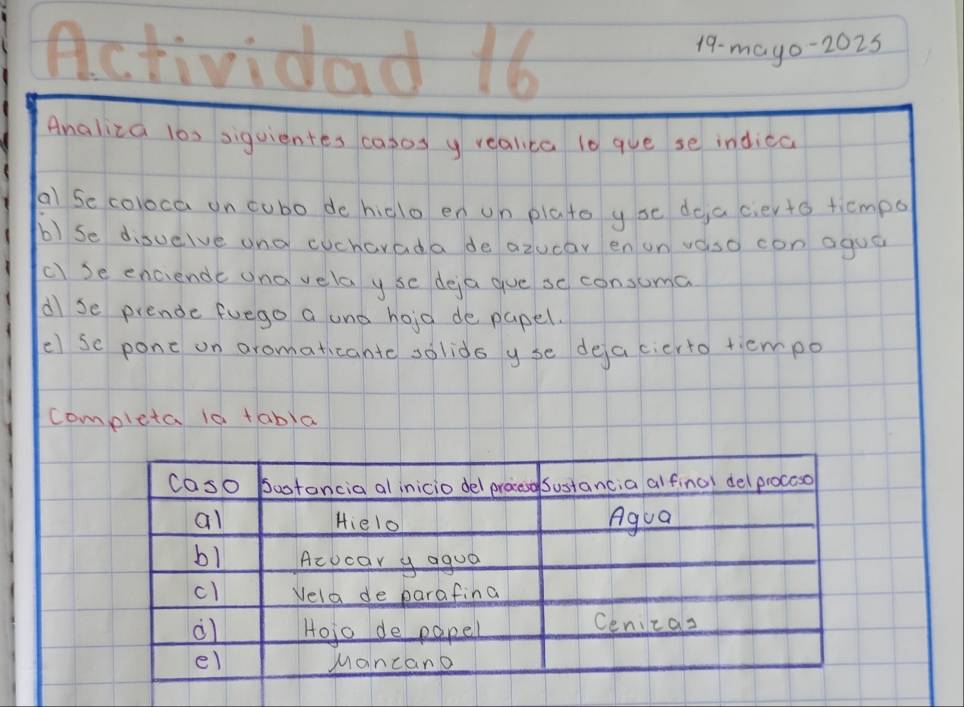 Actividad 16
19-mayo-2025
Analiza los siguientes casos y realiza lo que se indica
a) Se coloca un cubo de hielo en un plato y se deja cierto tiempo
b) Se disuelve una cucharada de azucar en un vaso con agua
c) Se enciende una vela y se deja que se consuma
d) Se prende fuego a una hoja de papel.
e) Se pone un aromaticante sólido y se deja cierto tiempo
completa la tabla
Caso Sustancia al inicio del proceso Sustancia al final del proceso
a) Hielo Agua
b) Azucar y agua
c) Vela de parafina
d) Hoja de papel Cenizas
e) Manzana